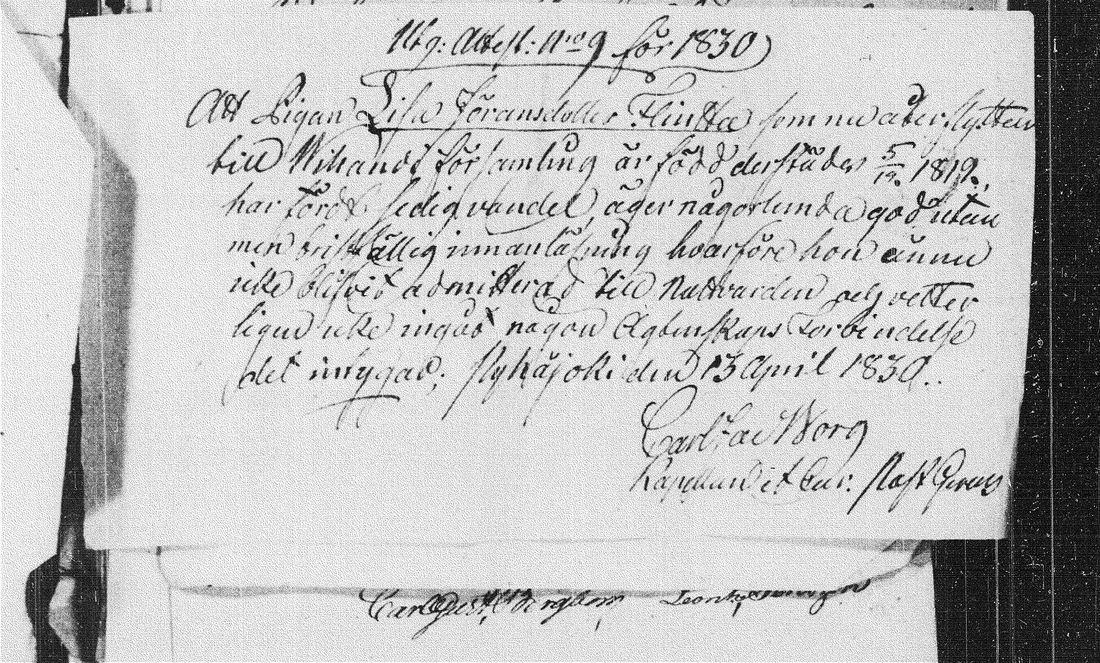 Utg: Attest: Nro 9 för 1830
Att Pigan Lisa Göransdotter Flinta som nu åter flyttar
till Wihands församling är född derstädes 5/12 1812.,
har fördt sedig vandel, äger någorlunda god utan
men bristfällig innanläsning hvarföre hon ännu
icke blifvit admitterad till Nattvarden och vetter
ligen icke ingått någon Ägtenskaps Förbindelse
det intygas; Pyhäjoki den 13 April 1830..
Carl Borg
Kapellan et Cur. Past Gerens
Carl Gust. Bergbom,